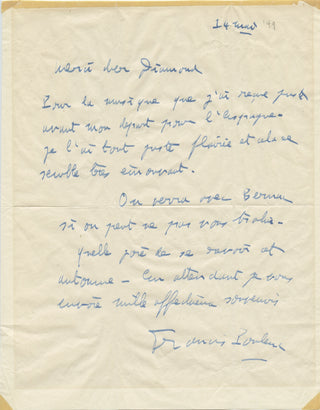 14 mars '49
merci cher Diamond
Pour la musique que j'ai reçue juste
avant mon départ pour l'Espagne
je l'ai tout juste et cela me
semble très émouvant.
On verra avec Bernac
si on peut pas vous
de se et
automne - En attendant je vous
envoie mille affectueux souvenirs
Francis Poulenc